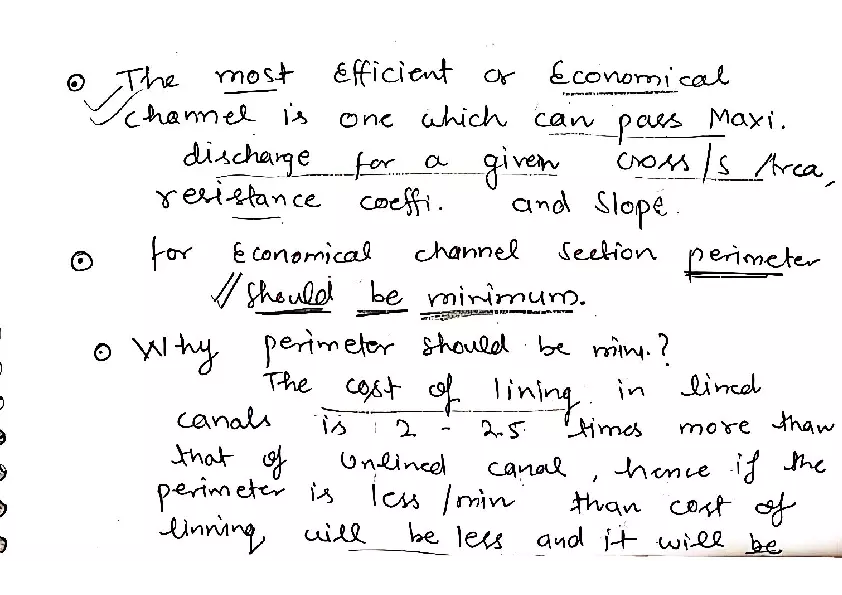 The most Efficient or Economical
channel is one which can pass Maxi.
discharge for a given cross/s Area,
resistance coeffi. and Slope.
for Economical channel section perimeter
should be minimum.
Why perimeter should be min.?
The cost of lining in lined
canals is 2 - 2.5 times more than
that of Unlined canal, hence if the
perimeter is less/min than cost of
linning will be less and it will be